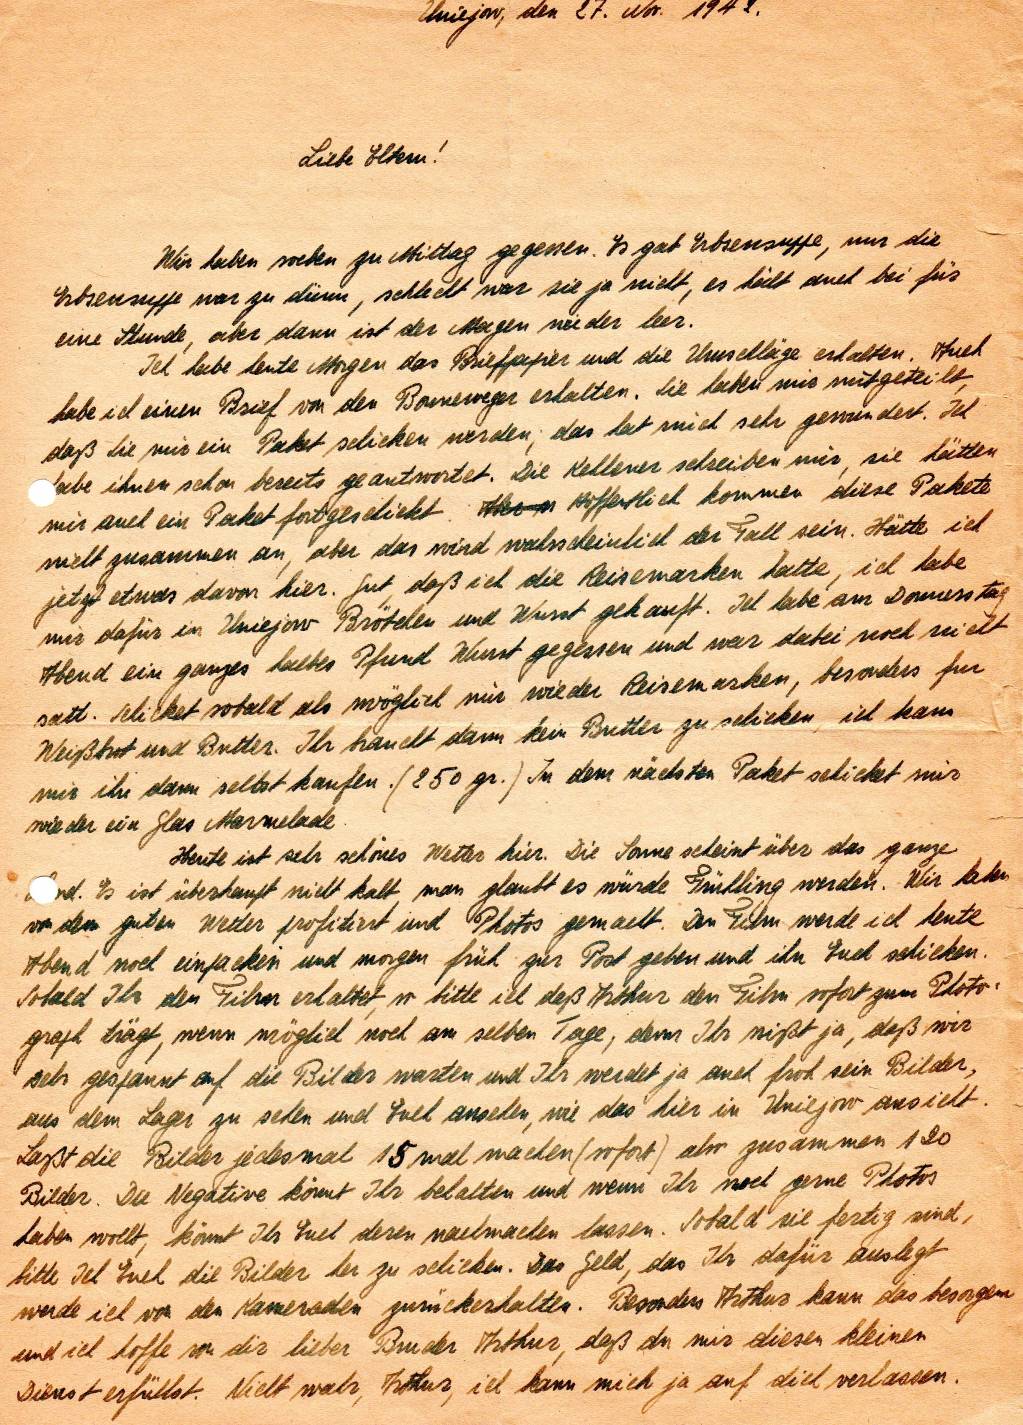 Uniejow, den 27. Nov. 1942.
Liebe Eltern!
Wir haben soeben zu Mittag gegessen. Es gab Erbsensuppe, nur die
Erbsensuppe war zu dünn, schlecht war sie ja nicht, es hält auch bei für
eine Stunde, aber dann ist der Magen wieder leer.
Ich habe heute Morgen das Briefpapier und die Umschläge erhalten. Auch
habe ich einen Brief von den Bonneweger erhalten. Sie haben mir mitgeteilt,
daß Sie mir ein Paket schicken werden, das hat mich sehr gewundert. Ich
habe ihnen schon bereits geantwortet. Die Kellener schreiben mir, sie hätten
mir auch ein Paket fortgeschickt. Hoffentlich kommen diese Pakete
nicht zusammen an, aber das wird wahrscheinlich der Fall sein. Hätte ich
jetzt etwas davon hier. Gut, daß ich die Reisemarken hatte, ich habe
mir dafür in Uniejow Brötchen und Wurst gekauft. Ich habe am Donnerstag
Abend ein ganzes halbes Pfund Wurst gegessen und war dabei noch nicht
satt. Schicket sobald als möglich mir wieder Reisemarken, besonders fur
Weißbrot und Butter. Ihr braucht dann kein Butter zu schicken, ich kann
mir ihn dann selbst kaufen. (250 gr.) In dem nächsten Paket schicket mir
wieder ein Glas Marmelade.
Heute ist sehr schönes Wetter hier. Die Sonne scheint über das ganze
Land. Es ist überhaupt nicht kalt man glaubt es würde Frühling werden. Wir haben
von dem guten Wetter profitiert und Photos gemacht. Den Film werde ich heute
Abend noch einpacken und morgen früh zur Post geben und ihn Euch schicken.
Sobald Ihr den Film erhaltet, so bitte ich daß Arthur den Film sofort zum Photo-
graph trägt, wenn möglich noch am selben Tage, denn Ihr wißt ja, daß wir
sehr gespannt auf die Bilder warten und Ihr werdet ja auch froh sein Bilder,
aus dem Lager zu sehen und Euch ansehen, wie das hier in Uniejow aussicht.
Laßt die Bilder jedesmal 15 mal machen (sofort) also zusammen 120
Bilder. Die Negative könnt Ihr behalten und wenn Ihr noch gerne Photos
haben wollt, könnt Ihr Euch deren nachmachen lassen. Sobald sie fertig sind,
bitte Ich Euch die Bilder her zu schicken. Das Geld, das Ihr dafür auslegt
werde ich von den Kameraden zurückerhalten. Besonders Arthur kann das besorgen
und ich hoffe von dir lieber Bruder Arthur, daß du mir diesen kleinen
Dienst erfüllst. Nicht wahr, Arthur, ich kann mich ja auf dich verlassen.